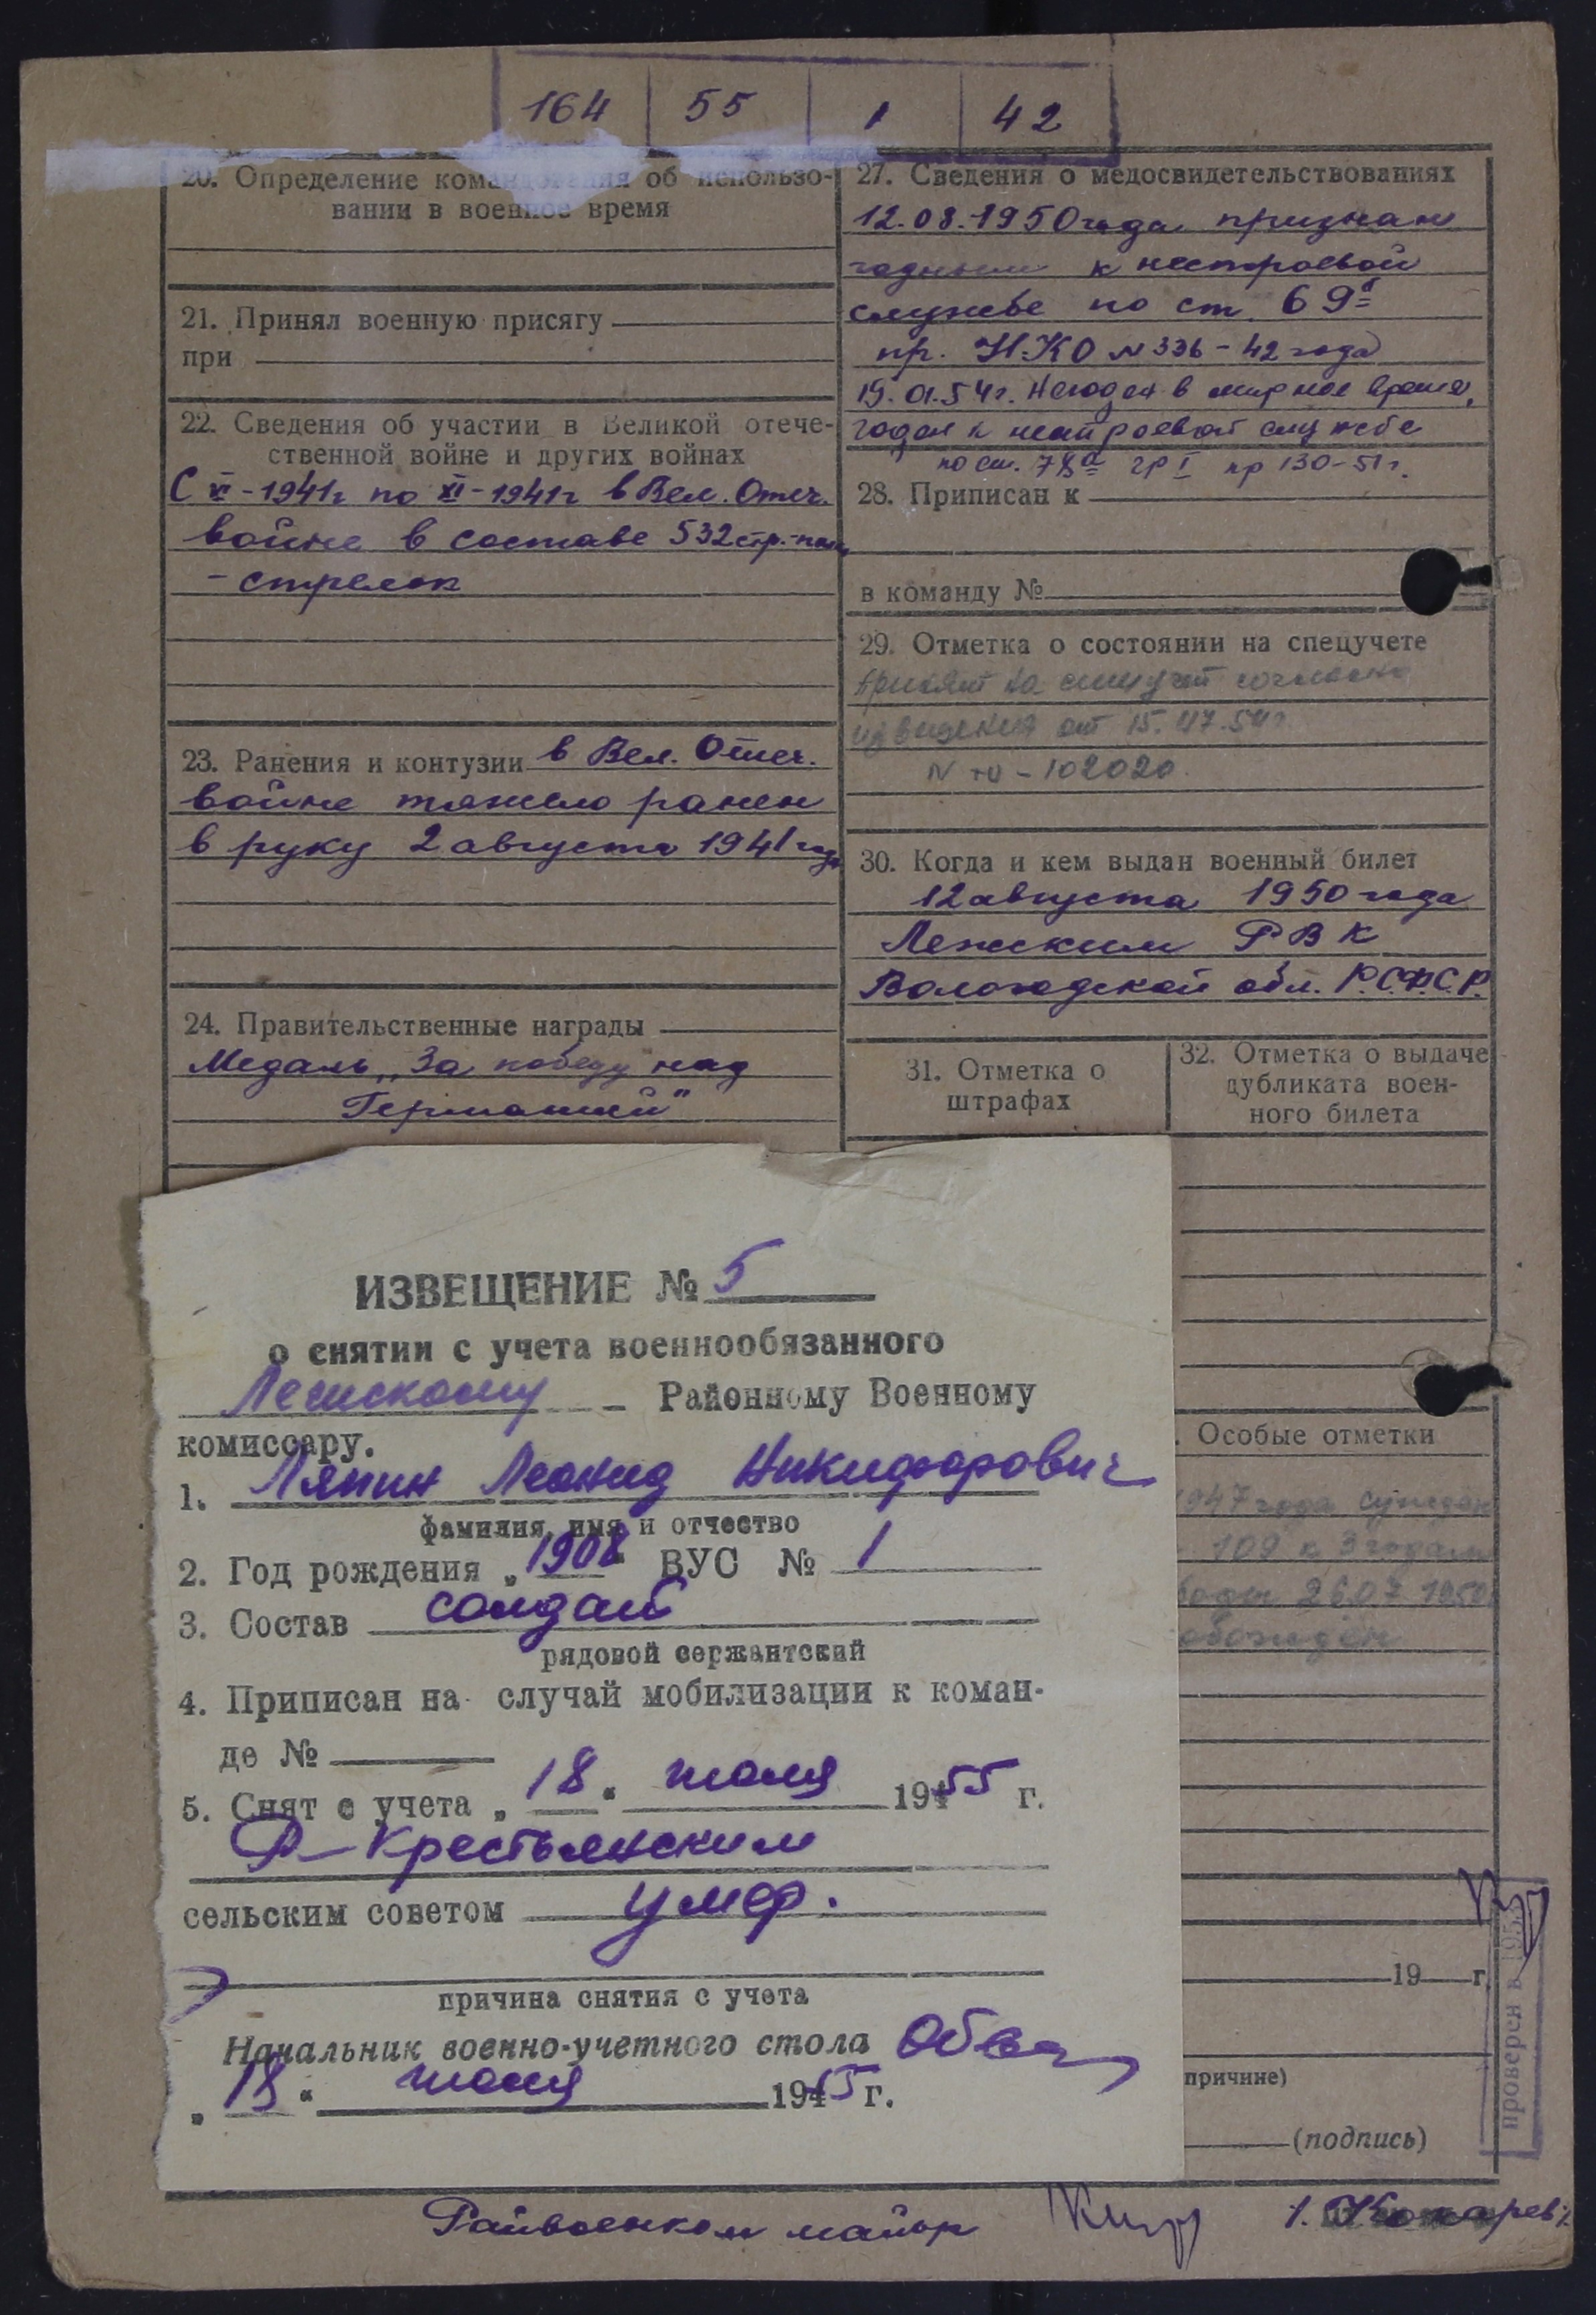 164 55 1 42
20. Определение командования об использо-
вании в военное время
21. Принял военную присягу
при
22. Сведения об участии в Великой отече-
ственной войне и других войнах
С VI-1941г по XI-1941г в Вел. Отеч.
войне в составе 532 стр.-полк
- стрелок
23. Ранения и контузии в Вел. Отеч.
войне тяжело ранен
в руку 2 августа 1941 года
24. Правительственные награды
Медаль „За победу над
Германией"
27. Сведения о медосвидетельствованиях
12.08.1950 года признан
годным к нестроевой
службе по ст. 69б
пр. Н.К.О № 336-42 года
19.01.54г. Негоден в мирное время,
годен к нестроевой службе
по ст. 78а гр I пр 130-51г.
28. Приписан к
в команду №
29. Отметка о состоянии на спецучете
принят на спецучет согласно
извещения от 15. 54г.
N - 102020
30. Когда и кем выдан военный билет
12 августа 1950 года
Лежским РВК
Вологодской обл. Р.С.Ф.С.Р.
31. Отметка о
штрафах
32. Отметка о выдаче
дубликата воен-
ного билета
. Особые отметки
1947 года сужден
109 к 3 годам
26.07 1950
19 г.
причине)
(подпись)
проверен в 1953
ИЗВЕЩЕНИЕ № 5
о снятии с учета военнообязанного
Лежскому Районному Военному
комиссару.
1. Ляпин Леонид Никифорович
фамилия, имя и отчество
2. Год рождения „1908" ВУС № 1
3. Состав солдат
рядовой сержантский
4. Приписан на случай мобилизации к коман-
де №
5. Снят с учета „18" июля 1955 г.
Р-Крестьянским
сельским советом умер.
причина снятия с учета
Начальник военно-учетного стола
„18" июля 1955 г.
Райвоенком майор